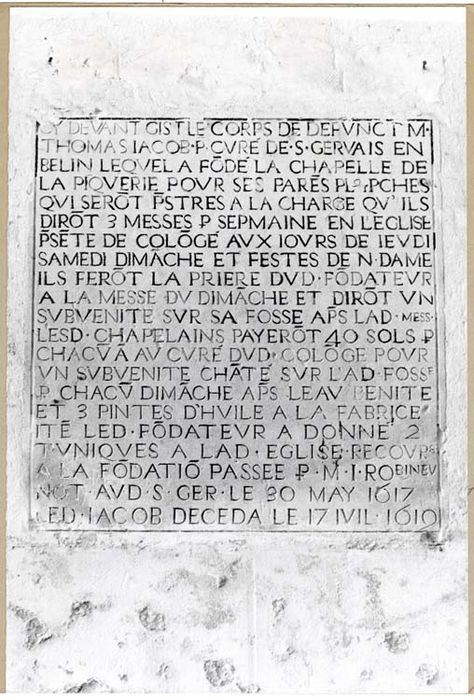 CY DEVANT GIST LE CORPS DE DEFVNCT M·
THOMAS IACOB·P·CVRE DE·S·GERVAIS EN
BELIN LEQVEL A FŌDÉ LA CHAPELLE DE
LA PIQVERIE POVR SES PARĒS PL9 PCHES
QVI SERŌT PSTRES A LA CHARGE QV'ILS
DIRŌT 3 MESSES P SEPMAINE EN L'EGLISE
PSĒTE DE COLŌGE AVX IOVRS DE IEVDI
SAMEDI DIMĀCHE ET FESTES DE N·DAME
ILS FERŌT LA PRIERE DVD·FŌDATEVR
A LA MESSE DV DIMĀCHE ET DIRŌT VN
SVBVENITE SVR SA FOSSE APS LAD·MESS·
LESD·CHAPELAINS PAYERŌT 40 SOLS P
CHACV̄ A AV CVRÉ DVD·COLŌGE POVR
VN SVBVENITE CHĀTÉ SVR L'AD·FOSSE
P CHACV̄ DIMĀCHE APS LEAV BENITE
ET 3 PINTES D'HVILE A LA FABRICE
ITĒ LED·FŌDATEVR A DONNÉ 2
TVNIQVES A LAD·EGLISE·RECOVRS
A LA FŌDATIŌ PASSEE P·M·I·ROBINEV
NOT·AVD·S·GER·LE 30 MAY 1617
LED·IACOB DECEDA LE 17 IVIL·1619